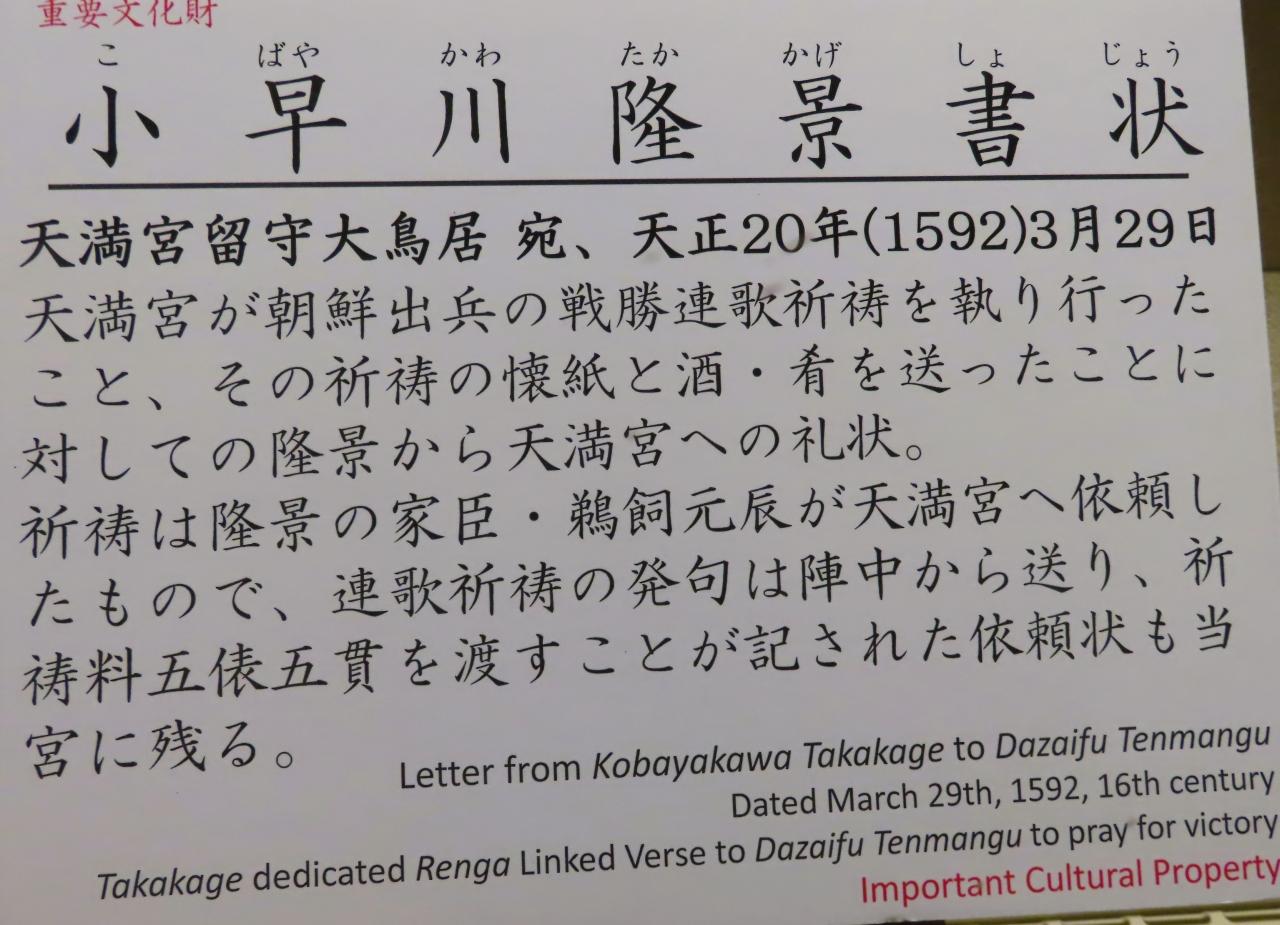 重要文化財
こ ばや かわ たか かげ しょ じょう
小早川隆景書状
天満宮留守大鳥居 宛、天正20年(1592)3月29日
天満宮が朝鮮出兵の戦勝連歌祈祷を執り行った
こと、その祈祷の懐紙と酒・肴を送ったことに
対しての隆景から天満宮への礼状。
祈祷は隆景の家臣・鵜飼元辰が天満宮へ依頼し
たもので、連歌祈祷の発句は陣中から送り、祈
祷料五俵五貫を渡すことが記された依頼状も当
宮に残る。
Letter from Kobayakawa Takakage to Dazaifu Tenmangu
Dated March 29th, 1592, 16th century
Takakage dedicated Renga Linked Verse to Dazaifu Tenmangu to pray for victory
Important Cultural Property